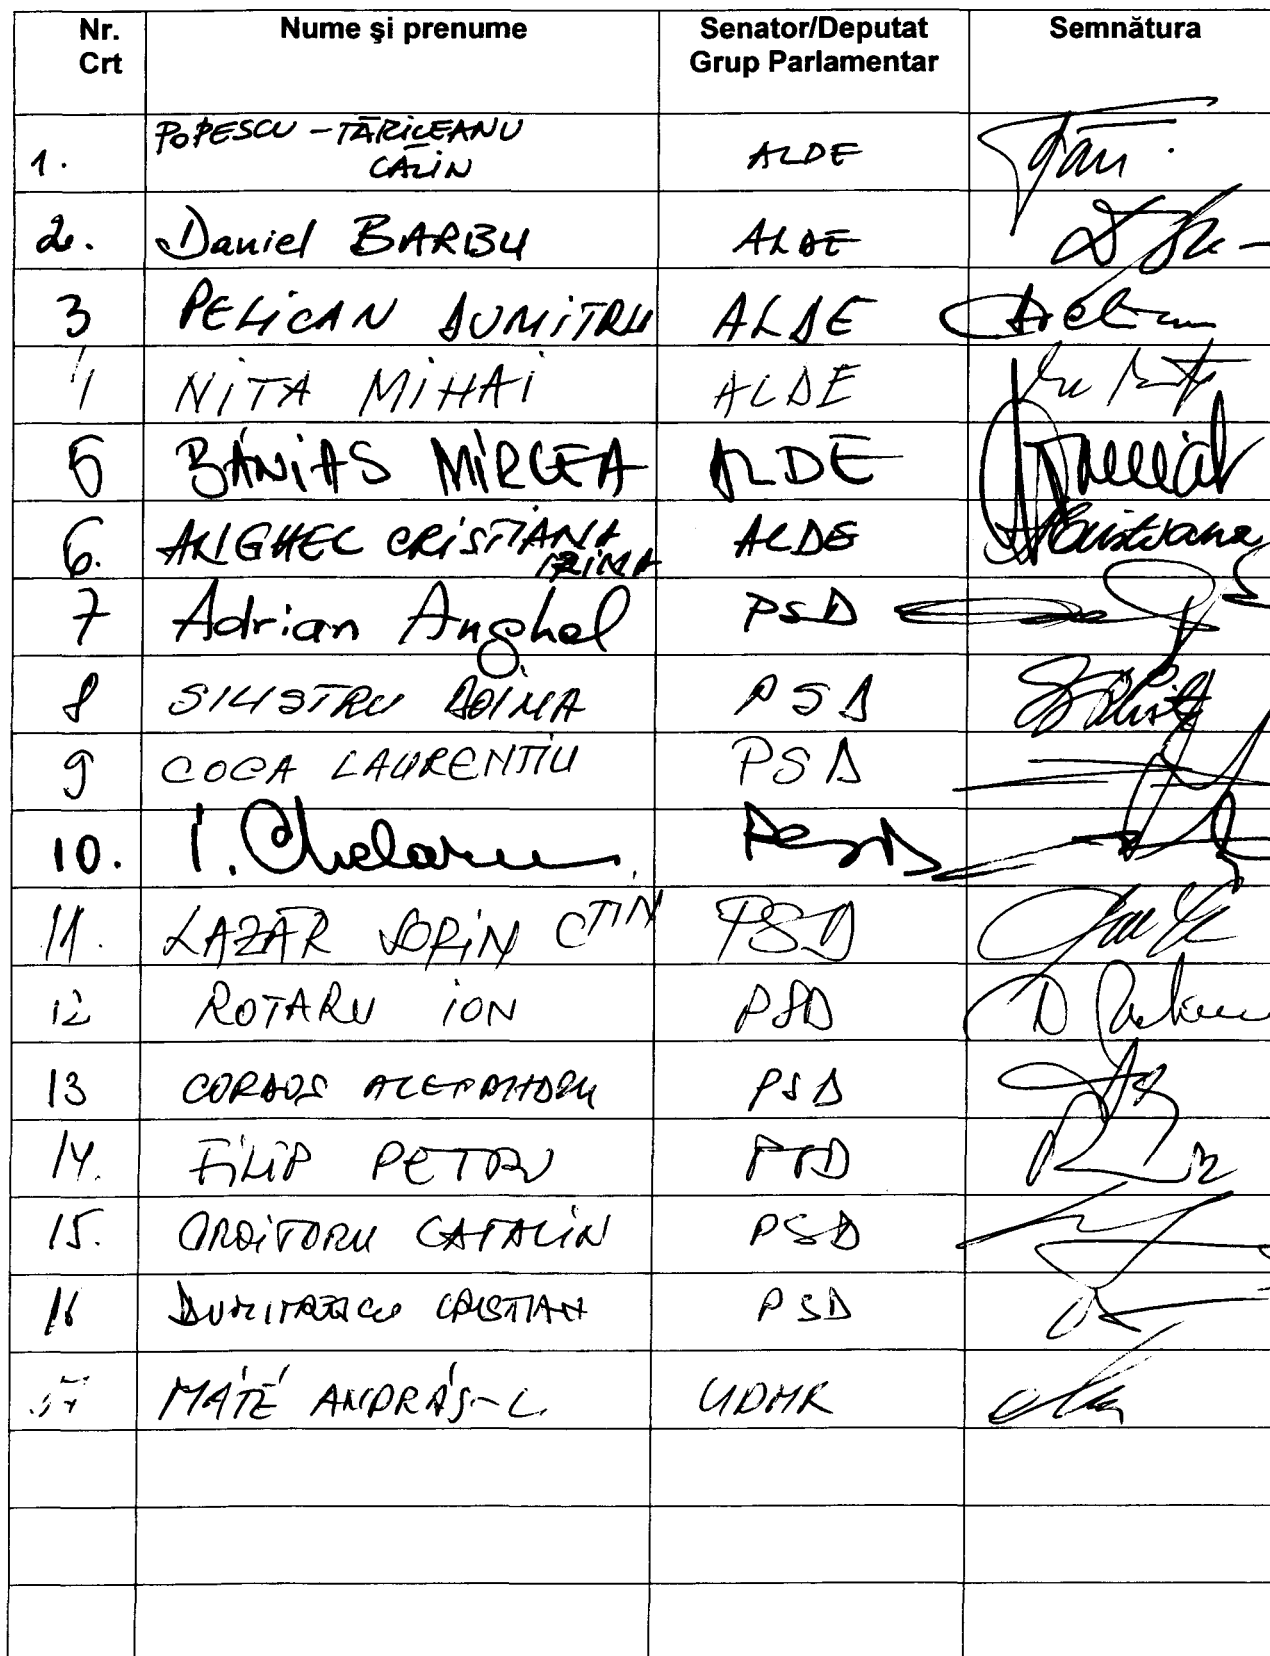 Nr. Crt Nume şi prenume Senator/Deputat Grup Parlamentar Semnătura
1. POPESCU-TĂRICEANU CĂLIN ALDE
2. Daniel BARBU ALDE
3 PELICAN DUMITRU ALDE
NITA MIHAI ALDE
5 BĂNIAS MIRCEA ALDE
6. ANGHEL CRISTIANA IRINA ALDE
7 Adrian Anghel PSD
8 SILISTRU DOINA PSD
9 COCA LAURENTIU PSD
10. I. Chelaru PSD
11. LAZĂR SORIN CTIN PSD
12 ROTARU ION PSD
13 CORDOS ALEXANDRU PSD
14. FILIP PETRU PSD
15. CROITORU CATALIN PSD
16 DUMITRESCU CRISTIAN PSD
MÁTÉ ANDRÁS-L. UDMR